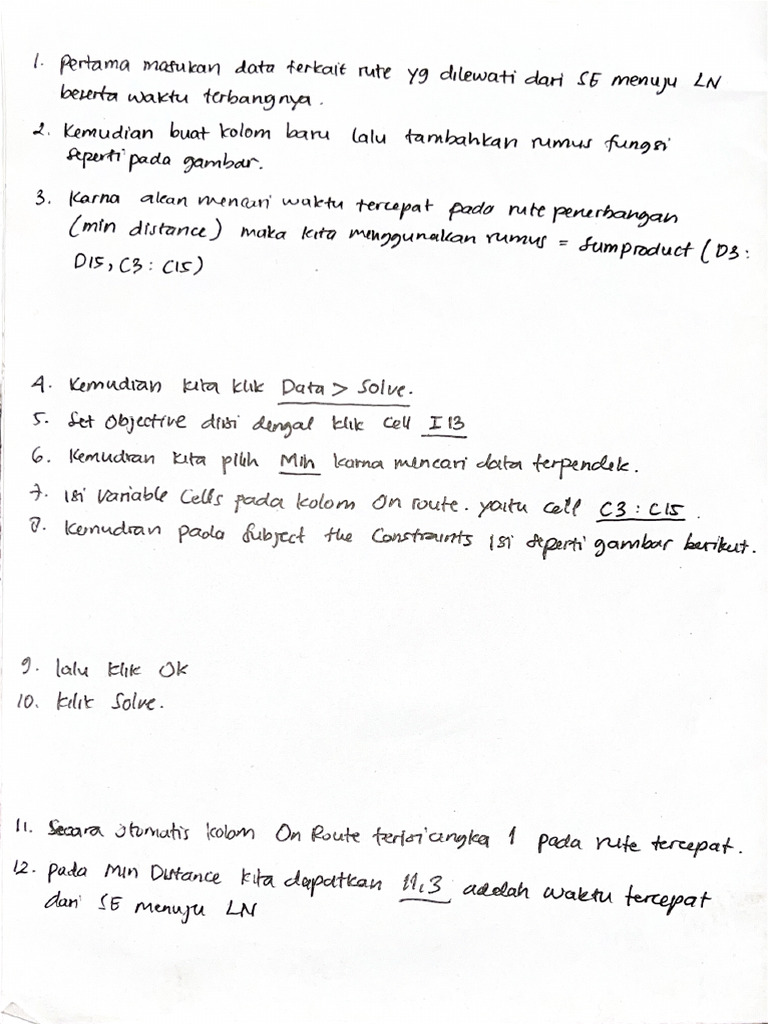 1. Pertama masukan data terkait rute yg dilewati dari SE menuju LN
beserta waktu terbangnya.
2. Kemudian buat kolom baru lalu tambahkan rumus fungsi
seperti pada gambar.
3. Karna akan mencari waktu tercepat pada rute penerbangan
(min distance) maka kita menggunakan rumus = Sumproduct (D3:
D15, C3:C15)
4. Kemudian kita klik Data > Solve.
5. Set Objective diisi dengal klik Cell I13
6. Kemudian kita pilih Min karna mencari data terpendek.
7. Isi Variable Cells pada kolom On route. yaitu cell C3:C15.
8. Kemudian pada Subject the Constraints isi seperti gambar berikut.
9. lalu klik Ok
10. Klik Solve.
11. Secara otomatis kolom On Route terisi angka 1 pada rute tercepat.
12. pada Min Distance kita dapatkan 11,3 adalah waktu tercepat
dari SE menuju LN